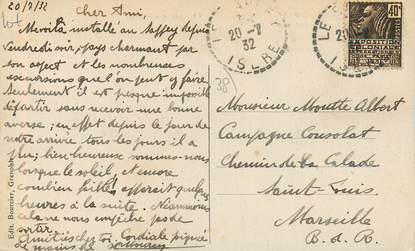 20/7/32
Cher Ami,
Me voilà installé au Sappey depuis
Vendredi soir, pays charmant par
son aspect et les nombreuses
excursions que l'on peut y faire.
Seulement il est presque impossible
de partir sans recevoir une bonne
averse; en effet depuis le jour de
notre arrivée tous les jours il a
plu; bien heureux sommes-nous
lorsque le soleil, et encore
combien faible apparait quelques
heures à la suite. Néanmoins
cela ne nous empêche pas de
sortir.
Amitiés chez toi. Cordiale poignée
de mains
Edit. Bonnier, Grenoble
LE
20-7
32
ISERE
LE
20
IS
40c
EXPOSITION
COLONIALE
38
Monsieur Moutte Albert
Campagne Consolat
Chemin de la Calade
Saint-Louis
Marseille
B. d. R.